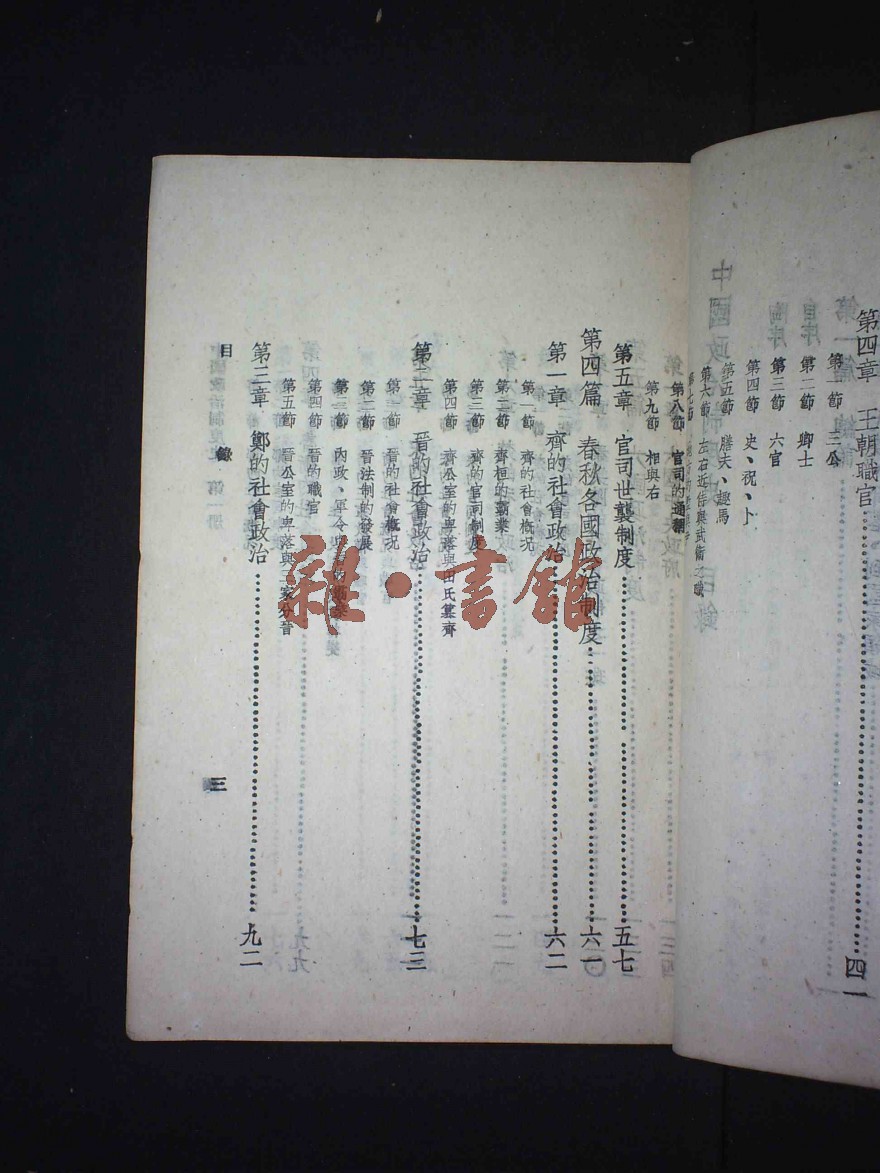 第四章 王朝職官 四一
第一節 三公
第二節 卿士
第三節 六官
第四節 史、祝、卜
第五節 膳夫、趣馬
第六節 左右近侍與武衛之職
第七節
第八節 官司的通稱
第九節 相與右
第五章 官司世襲制度 五七
第四篇 春秋各國政治制度 六一
第一章 齊的社會政治 六二
第一節 齊的社會概況
第二節 齊桓的霸業
第三節 齊的官司制度
第四節 齊公室的卑落與田氏篡齊
第二章 晉的社會政治 七三
第一節 晉的社會概況
第二節 晉法制的發展
第三節 內政、軍令
第四節 晉的職官
第五節 晉公室的卑落與三家分晉
第三章 鄭的社會政治 九二
目錄 三
雜·書館